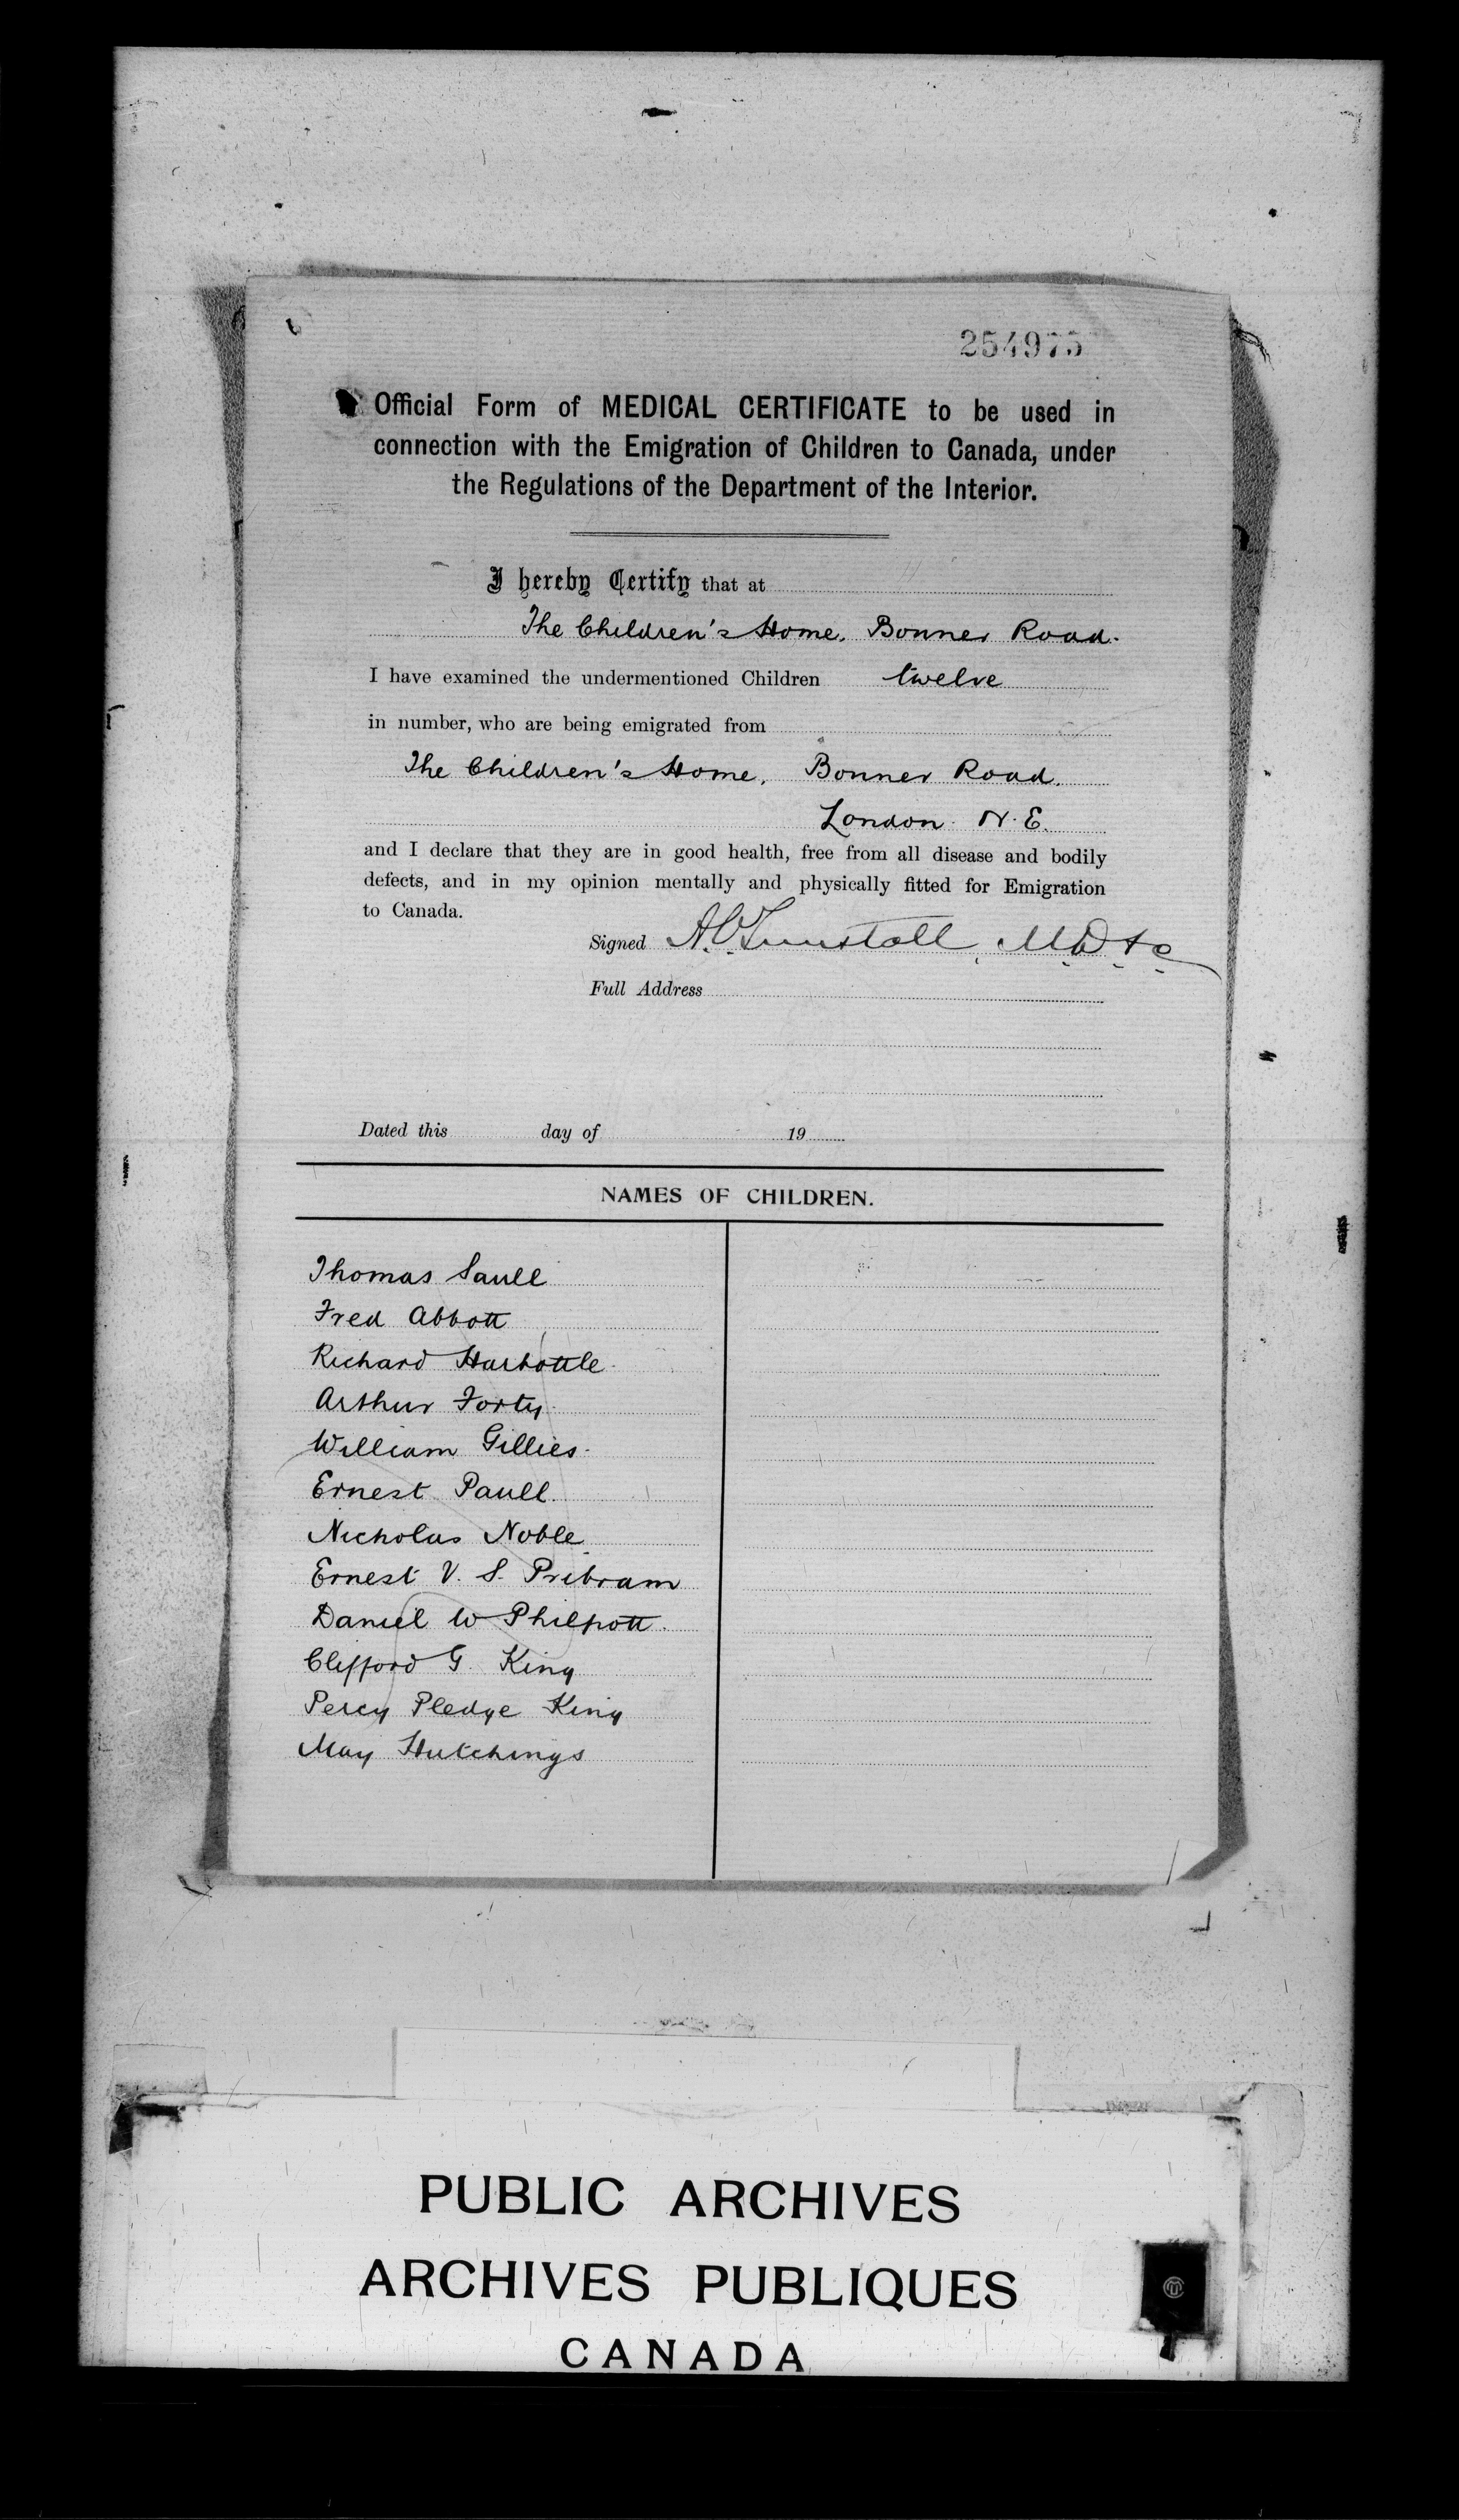 254975
Official Form of MEDICAL CERTIFICATE to be used in
connection with the Emigration of Children to Canada, under
the Regulations of the Department of the Interior.
I hereby Certify that at
The Children's Home. Bonner Road.
I have examined the undermentioned Children twelve
in number, who are being emigrated from
The Children's Home, Bonner Road.
London. N. E.
and I declare that they are in good health, free from all disease and bodily
defects, and in my opinion mentally and physically fitted for Emigration
to Canada.
Signed A.C. Tunstall, M.D. &c
Full Address
Dated this day of 19
NAMES OF CHILDREN.
Thomas Saull
Fred Abbott
Richard Harbottle
Arthur Forty
William Gillies
Ernest Paull.
Nicholas Noble
Ernest V. S. Pribram
Daniel W Philpott.
Clifford G. King
Percy Pledge King
May Hutchings
PUBLIC ARCHIVES
ARCHIVES PUBLIQUES
CANADA